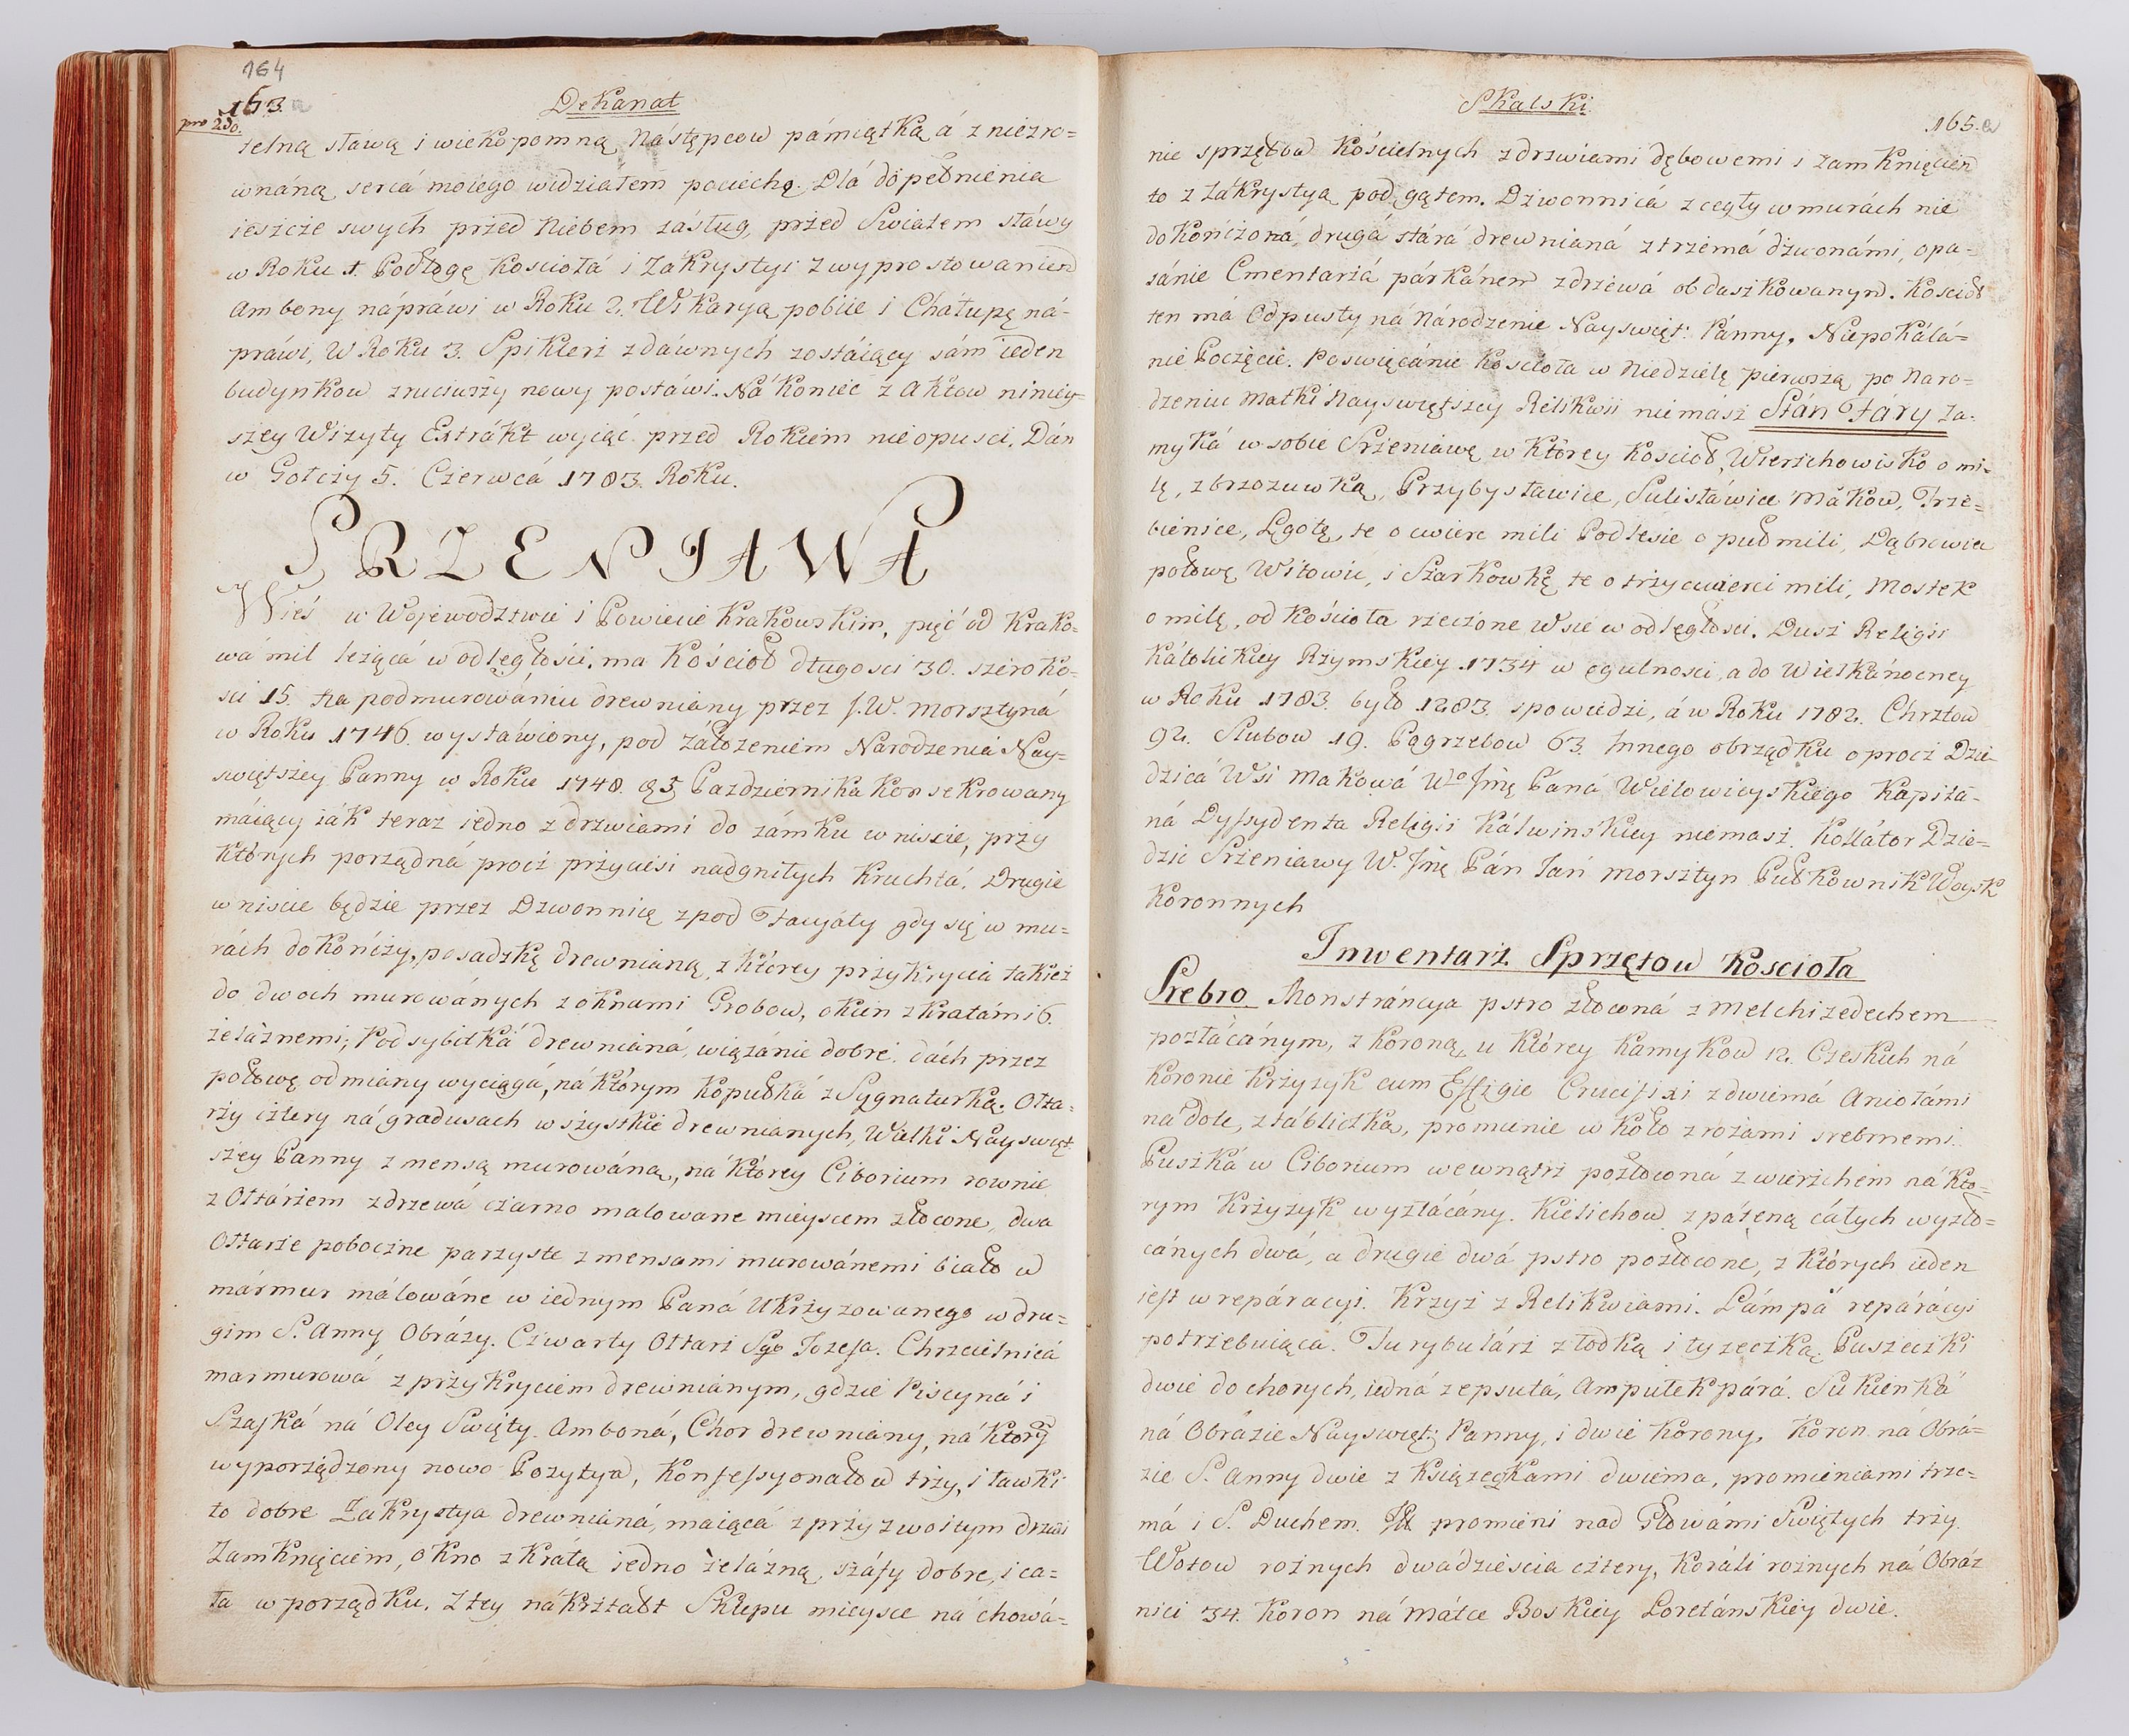 164
163.a
pro 2do.
Dekanat
telną sławą i wiekopomną Następcow pámiątką á z niezro=
wnáną sercá moiego widziałem pociechę. Dlá dopełnienia
ieszcze swych przed Niebem zásług, przed Swiatem sławy
w Roku 1. Podłogę Kosciołá i Zákrystyi z wyprostowaniem
Ambony nápráwi w Roku 2. Wikaryą pobiie i Chałupę ná-
práwi, W Roku 3. Spiklerz zdáwnych zostáiący sám ieden
budynkow zruciwszy nowy postáwi. Ná Koniec z Aktow ninięy=
szey Wizyty Extrákt wyiąć przed Rokiem nieopusci. Dán
w Gołczy 5. Czerwcá 1783. Roku.
SRZENIAWA
Wieś w Wojewodztwie i Powiecie Krakowskim, pięć od Krako=
wá mil leżącá w odległości, ma Kościoł długosci 30. szeroko=
sci 15. na podmurowániu drewniany przez J.W. Morsztyná
w Roku 1746. wystáwiony, pod záłożeniem Narodzenia Nay=
swiętszey Panny w Roku 1748. 25 Pazdziernika Konsekrowany
máiący iák teraz iedno z drzwiami do zámku wniscie, przy
Których porządná procz przyciesi nadgniłych Kruchtá. Drugie
wniscie będzie przez Dzwonnicę zpod Facyáty gdy się w mu=
rách dokończy, posadzkę drewnianą, z Ktorey przykrycia takież
do dwoch murowánych z oknami Grobow, okien z Kratámi 6.
żeláznemi; Podsybitká drewnianá, wiązánie dobre. dách przez
połowę odmiany wyciągá, ná Ktorym Kopułká z Sygnaturką. Ołta=
rzy cztery ná gradusach wszystkie drewnianych, Wielki Nayswięt=
szey Panny z mensą murowáną, ná Ktorey Ciborium rownie
z Ołtárzem z drzewá czarno malowane mieyscem złocone, dwa
Ołtarze poboczne parzyste z mensami murowánemi biało w
mármur málowáne w iednym Paná Ukrzyżowanego w dru=
gim S. Anny Obrázy. Czwarty Ołtarz Sgo Iozefa. Chrzcielnicá
marmurowá z przykryciem drewnianym, gdzie Piscyná i
Szafká ná Oley Swięty. Amboná, Chor drewniany, ná Ktory
wyporządzony nowo Pozytyw, Konfessyonałow trzy, i ławki
to dobre Zakrystya drewnianá, maiącá z przyzwoitym drzwi
Zamknięciem, okno z Kratą iedno żelázną, száfy dobre, i ca=
ła w porządku. Z tey ná Kształt Sklepu mieysce ná chowá=
Skalski.
165.a
nie sprzętow Kościelnych z drzwiami dębowemi i zamknięciem
to z Zákrystyą pod gątem. Dzwonnicá z cegły w murách nie
dokończoná, drugá stárá drewnianá z trzemá dzwonámi, opa=
sánie Cmentarzá párkánem z drzewá obdaszkowanym. Koscioł
ten má Odpusty ná Národzenie Nayswięt: Pánny, Niepokálá=
nie Poczęcie. Poswięcánie Kosciołá w Niedzielę pierwszą po Naro=
dzeniu Matki Nayswiętszey Relikwii niemász Stán Fáry za=
myká w sobie Srzeniawę w Ktorey Koscioł, Wierzchowisko o mi=
lę, z brzozuwką, Przybysławice, Sulisławice Maków, Trze=
bienice, Lgotę, te o cwierc mili Podlesie o puł mili, Dąbrowice
połowę Witowic, i Szarkowkę te o trzy cwierci mili, Mostek
o milę, od Kościoła rzeczone wsie w odległosci. Dusz Religii
Kátolickiey Rzymskiey 1734 w ogulnosci, a do Wielkánocney
w Roku 1783. było 1283. spowiedzi, á w Roku 1782. Chrztow
92. Slubow 19. Pogrzebow 63. Innego obrządku oprocz Dzie=
dzica Wsi Makowá Wo Jmę Paná Wielowieyskiego Kapita=
ná Dyssydenta Religii Kálwińskiey niemasz. Kollátor Dzie=
dzic Srzeniawy W. Jmę Pán Jan Morsztyn Pułkownik Woysk
Koronnych
Inwentarz Sprzętow Kościoła
Srebro Monstráncya pstro złoconá z Melchizedechem
pozłácánym, z Koroną, u Ktorey Kamykow 12. Czeskich ná
Koronie Krzyzyk cum Effigie Crucifixi z dwiemá Aniołámi
ná dole, z tabliczką, promienie w koło z rożami srebrnemi.
Puszká w Ciborium wewnątrz pozłoconá z wierzchem ná Kto=
rym Krzyżyk wyzłácány. Kielichow z páteną cáłych wyzło=
cánych dwá, a drugie dwá pstro pozłocone, z Ktorych ieden
iest w repáracyi. Krzyż z Relikwiami. Lámpá repáracyi
potrzebuiąca. Turybularz z łodką i łyżeczką. Puszeczki
dwie do chorych, iedná zepsutá, Ampułek párá. Sukienká
ná Obrázie Nayswięt: Panny, i dwie Korony, Koron ná Obrá=
zie S. Anny dwie z Ksiązeczkami dwiema, promieniami trze=
má i S. Duchem. promieni nad Głowámi Swiętych trzy.
Wotow rożnych dwadziescia cztery, Koráli rożnych ná Obráz
nici 34. Koron ná Mátce Boskiey Loretánskiey dwie.